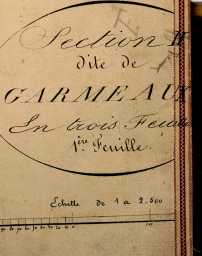 Section H
dite de
GARMEAUX
En trois Feuilles
1ère Feuille.
Echelle de 1 a 2.500